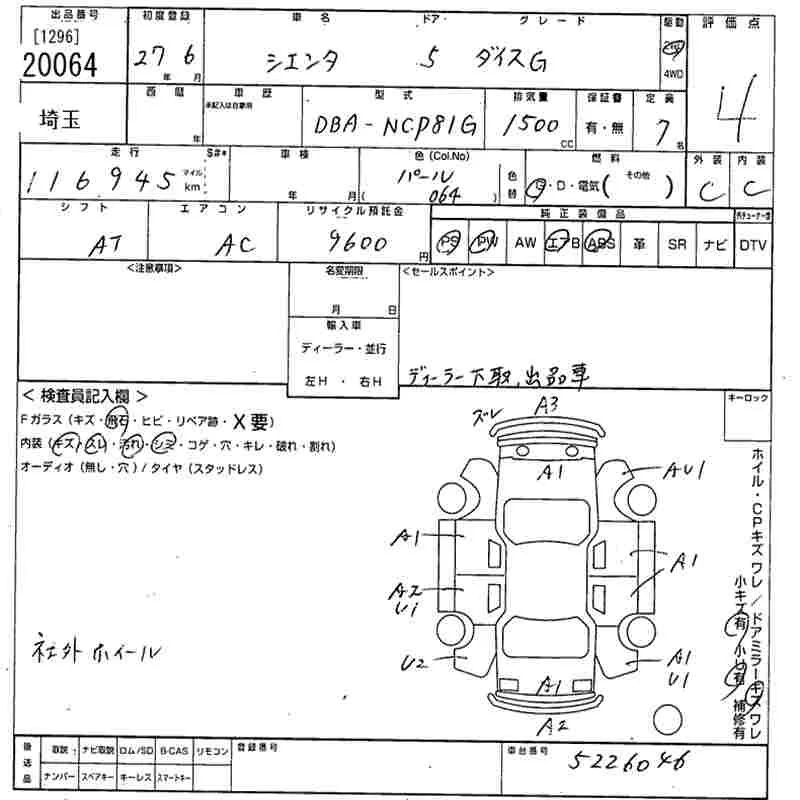 出品番号 初度登録 車名 ドア・ グレード 駆動 評価点
[1296]
20064 27年 6月 シエンタ 5 ダイスG 2WD 4WD 4
埼玉 西暦 年 車歴 未記入は自家用 型式 排気量 保証書 定員
DBA-NCP81G 1500 CC 有・無 7名
走行 S#* 車検 色(Col.No) 燃料 外装 内装
116945 マイル km 年 月 パール ( 064 ) 色替 G・D・電気( その他 ) C C
シフト エアコン リサイクル預託金 純正装備品
AT AC 9600円 PS PW AW エアB ABS 革 SR ナビ DTV
<注意事項> 名変期限 <セールスポイント>
月 日
輸入車
ディーラー・並行
左H ・ 右H
ディーラー下取,出品車
<検査員記入欄> キーロック
Fガラス(キズ・飛石・ヒビ・リペア跡・X要)
内装(キズ・スレ・汚れ・シミ・コゲ・穴・キレ・破れ・割れ)
オーディオ(無し・穴)/タイヤ(スタッドレス)
ズレ A3
A1 AU1
A1 A1
A2
U1
U2 A1
U1
A1
A2
社外ホイール
ホイル・CPキズワレ/ドアミラーキズワレ
小キズ有 小凹有 補修有
後送品 取説 ナビ取説 ロム/SD B-CAS リモコン 登録番号 車台番号
ナンバー スペアキー キーレス スマートキー 5226046